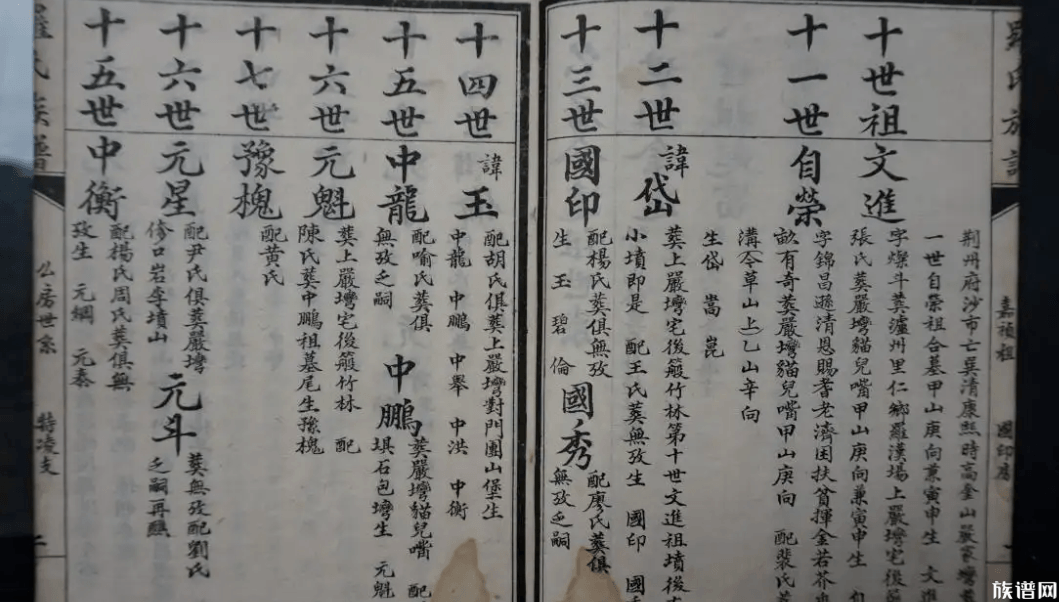 荆州府沙市亡
一世自榮祖合墓甲山庚向兼寅申生 文進
十世祖 文進
字燦斗葬瀘州里仁鄉羅漢場上嚴塆宅後
張氏葬嚴塆貓兒嘴甲山庚向兼寅申生
十一世 自榮
字錦昌遜清恩賜耆老濟困扶貧揮金若芥
畝有奇葬嚴塆貓兒嘴甲山庚向 配裴氏
溝今草山上乙山辛向
生岱 嵩 崑
十二世 諱岱
葬上嚴塆宅後箭竹林第十世文進祖墳後
小墳即是 配王氏葬無攷生 國印 國
十三世 國印
配楊氏葬俱無攷
生 玉 碧 倫
國秀
配廖氏葬俱
無攷乏嗣
十四世 諱玉
配胡氏俱葬上嚴塆對門團山堡生
中龍 中鵬 中舉 中洪 中衡
十五世 中龍
配喻氏葬俱
無攷乏嗣
中鵬
葬嚴塆貓兒嘴 配
埧石包塆生 元魁
十六世 元魁
葬上嚴塆宅後箭竹林 配
陳氏葬中鵬祖墓尾生豫槐
十七世 豫槐
配黄氏
十六世 元星
配尹氏俱葬嚴塆
岩李墳山
元斗
葬無攷配劉氏
乏嗣再醮
十五世 中衡
配楊氏周氏葬俱無
攷生 元綱 元泰
嘉禎祖
國印房
公房世系
特凌支
族谱网